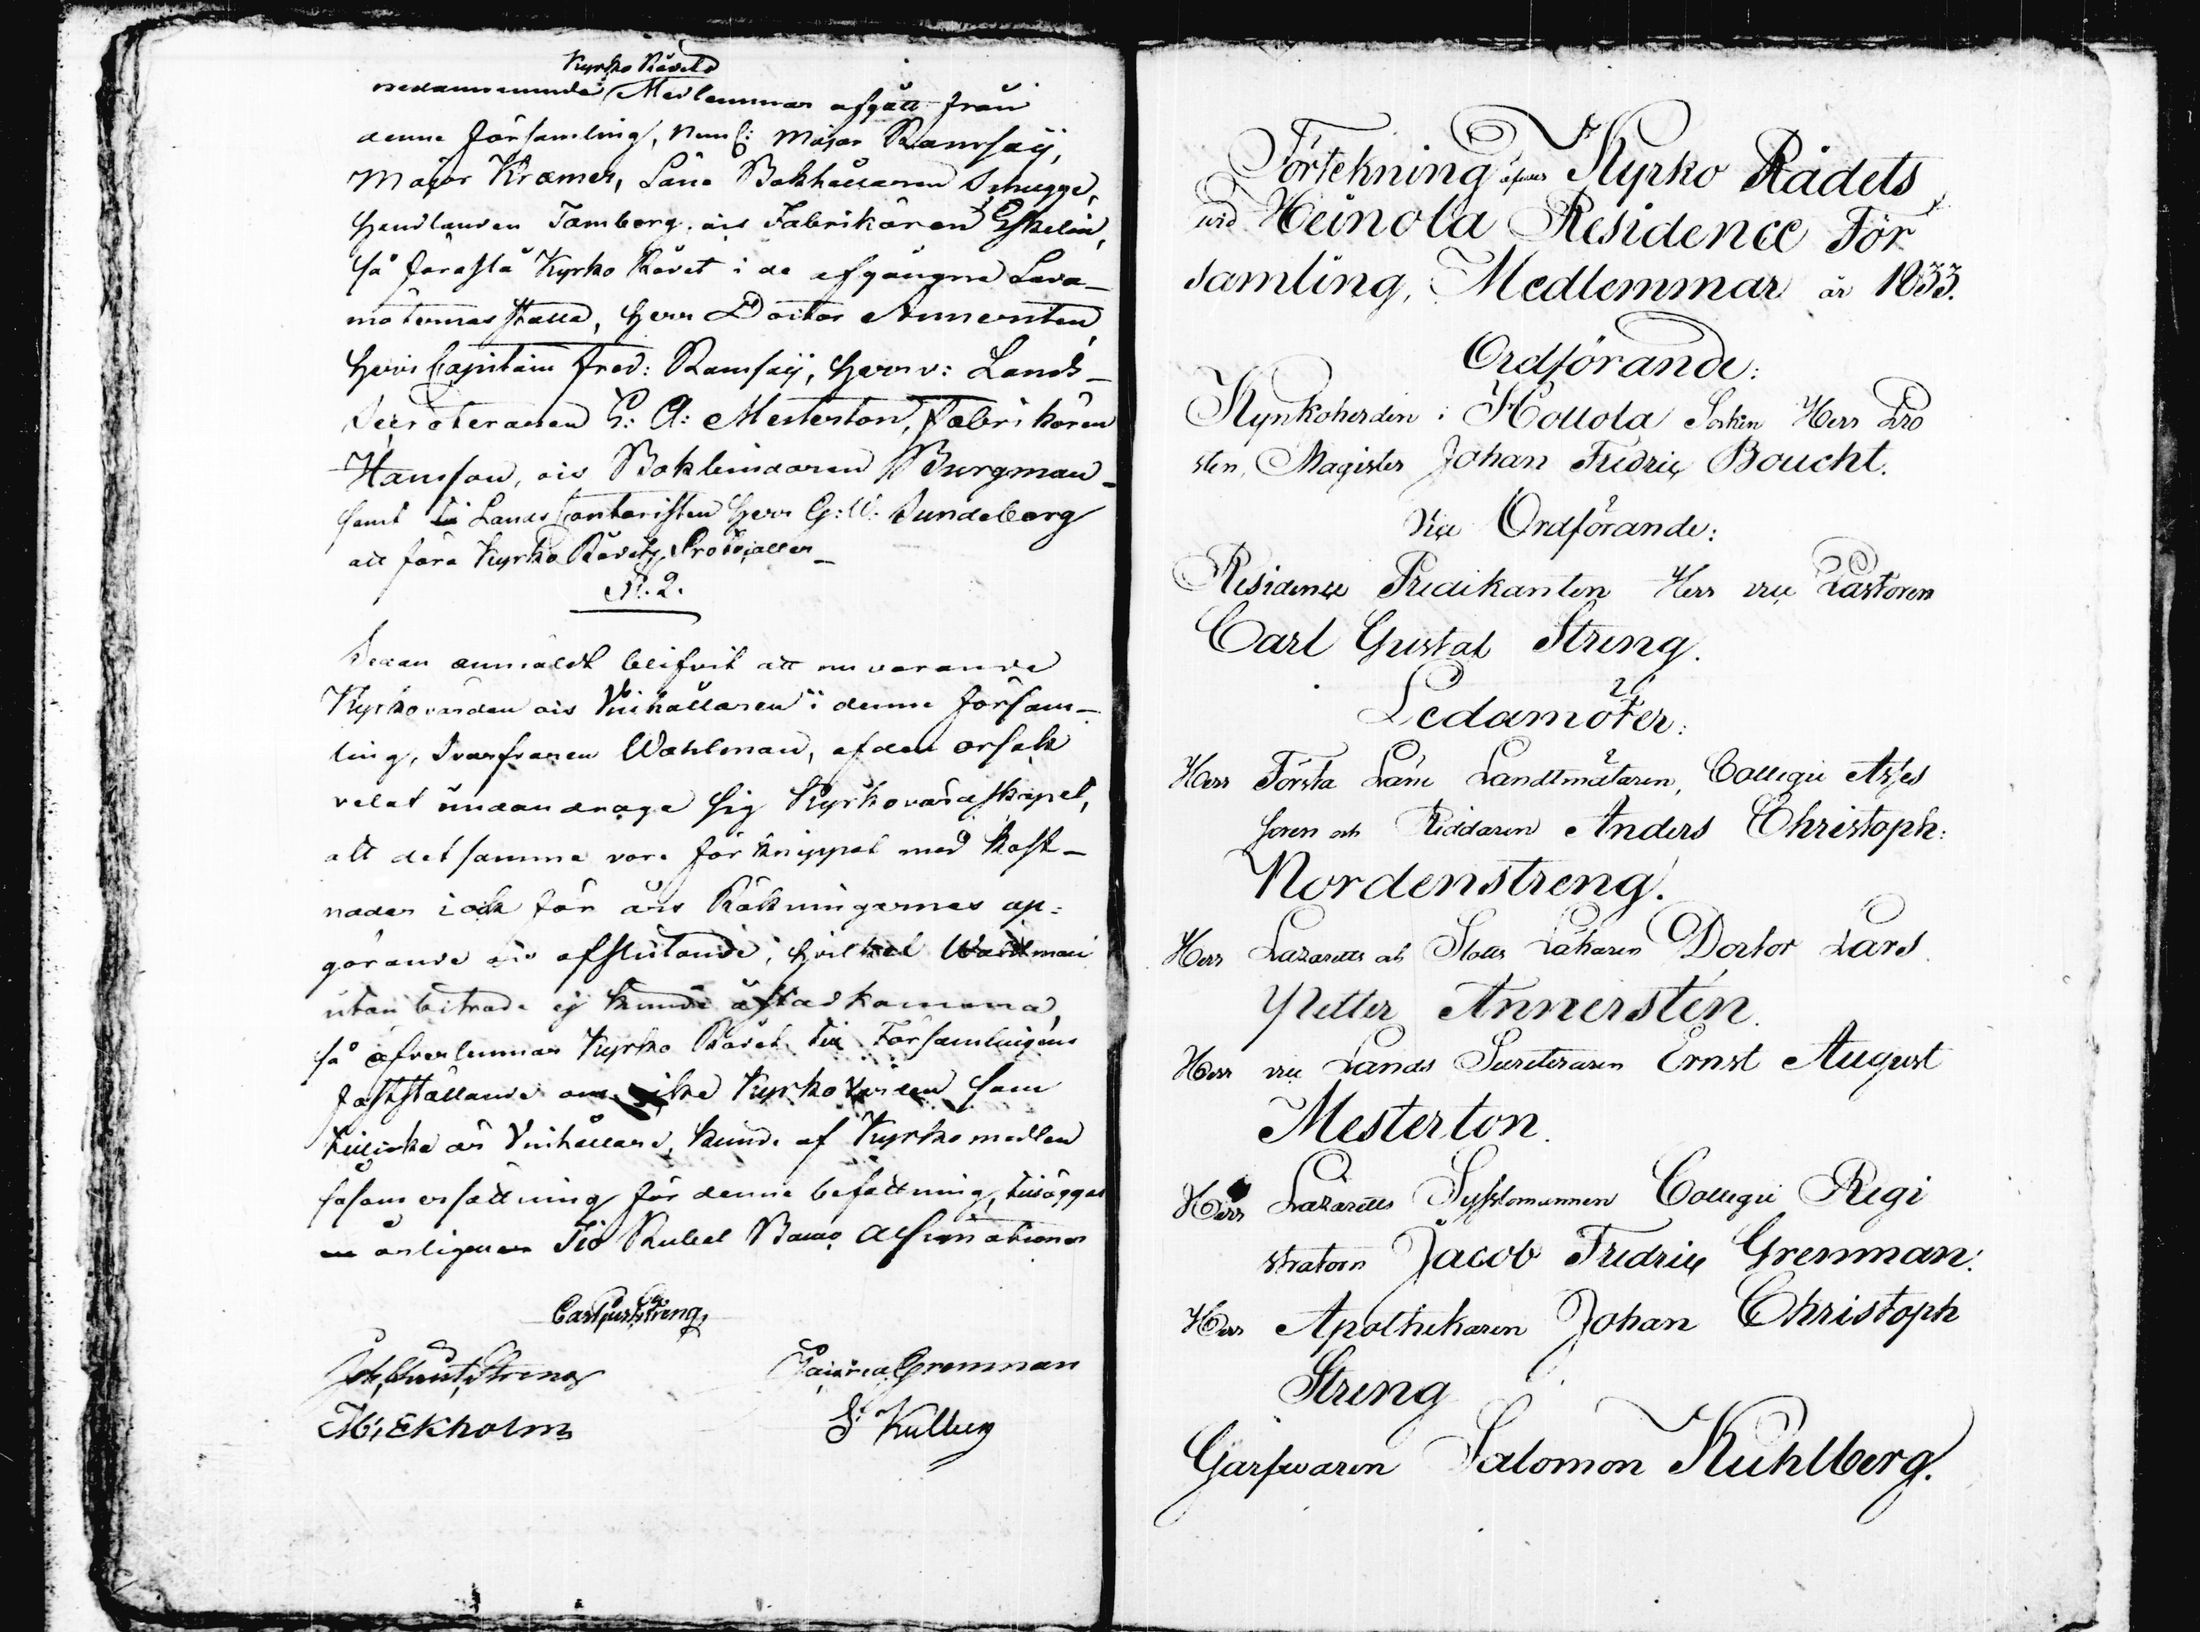 Kyrko Rådets
nedannemnde Medlemmar afgått från
denne församling, neml: Major Ramsaij,
Major Kræmer, Läns Bokhållaren Schugge,
Handlanden Tamberg, och Fabrikören Eskelin,
så föreslå Kyrko Rådet i de afgångne Leda-
möternas ställe, Herr Doctor Annersten,
Herr Capitain Fred: Ramsaij, Herr v: Lands-
Secreteraren E: A: Mesterton, Fabrikören
Hansson, och Bokbindaren Burgman-
samt till Lands Contoristen Herr G: W: Sundeberg
att föra Kyrko Rådets Protocoller-
N. 2.
Sedan anmäldt blifvit att nuvarande
Kyrkovärden och Vinhållaren i denne försam-
ling, Svarfvaren Wahlman, af den orsak
velat undandraga sig Kyrkovärdskapet,
att detsamma vore förknippat med kost-
nader och för års Räkningarnes up-
görande och afslutande, hvilket Wahlman
utan biträde ej kunde åstadkomma,
så öfverlemnar Kyrko Rådet till Församlingens
fastställande om icke Kyrkovärden som
tillika är Vinhållare, kunde af Kyrkomedlen
såsom ersättning för denne befattning, tilläggas
årligen Tio Rubel Banco Assignationer
Carl Gust Streng
Joh. Christ. Streng Jac. Fred. Grenman
M. Ekholm S. Kullberg
Förtekning öfver Kyrko Rådets
wid Heinola Residence För
samling, Medlemmar år 1833.
Ordförande:
Kyrkoherden i Hollola Sockn Herr Pro
sten, Magister Johan Fredric Boucht.
Vice Ordförande:
Residence Predikanten Herr vice Pastoren
Carl Gustaf Streng.
Ledamöter:
Herr Första Läne Landtmätaren, Collegii Asses
soren och Riddaren Anders Christoph:
Nordenstreng.
Herr Lazaretts och Slotts Läkaren Doctor Lars
Petter Annerstén.
Herr vice Lands Secreteraren Ernst August
Mesterton.
Herr Lazaretts Sysslomannen Collegii Regi
stratorn Jacob Fredric Grenman.
Herr Apothekaren Johan Christoph
Streng
Garfwaren Salomon Kuhlberg.